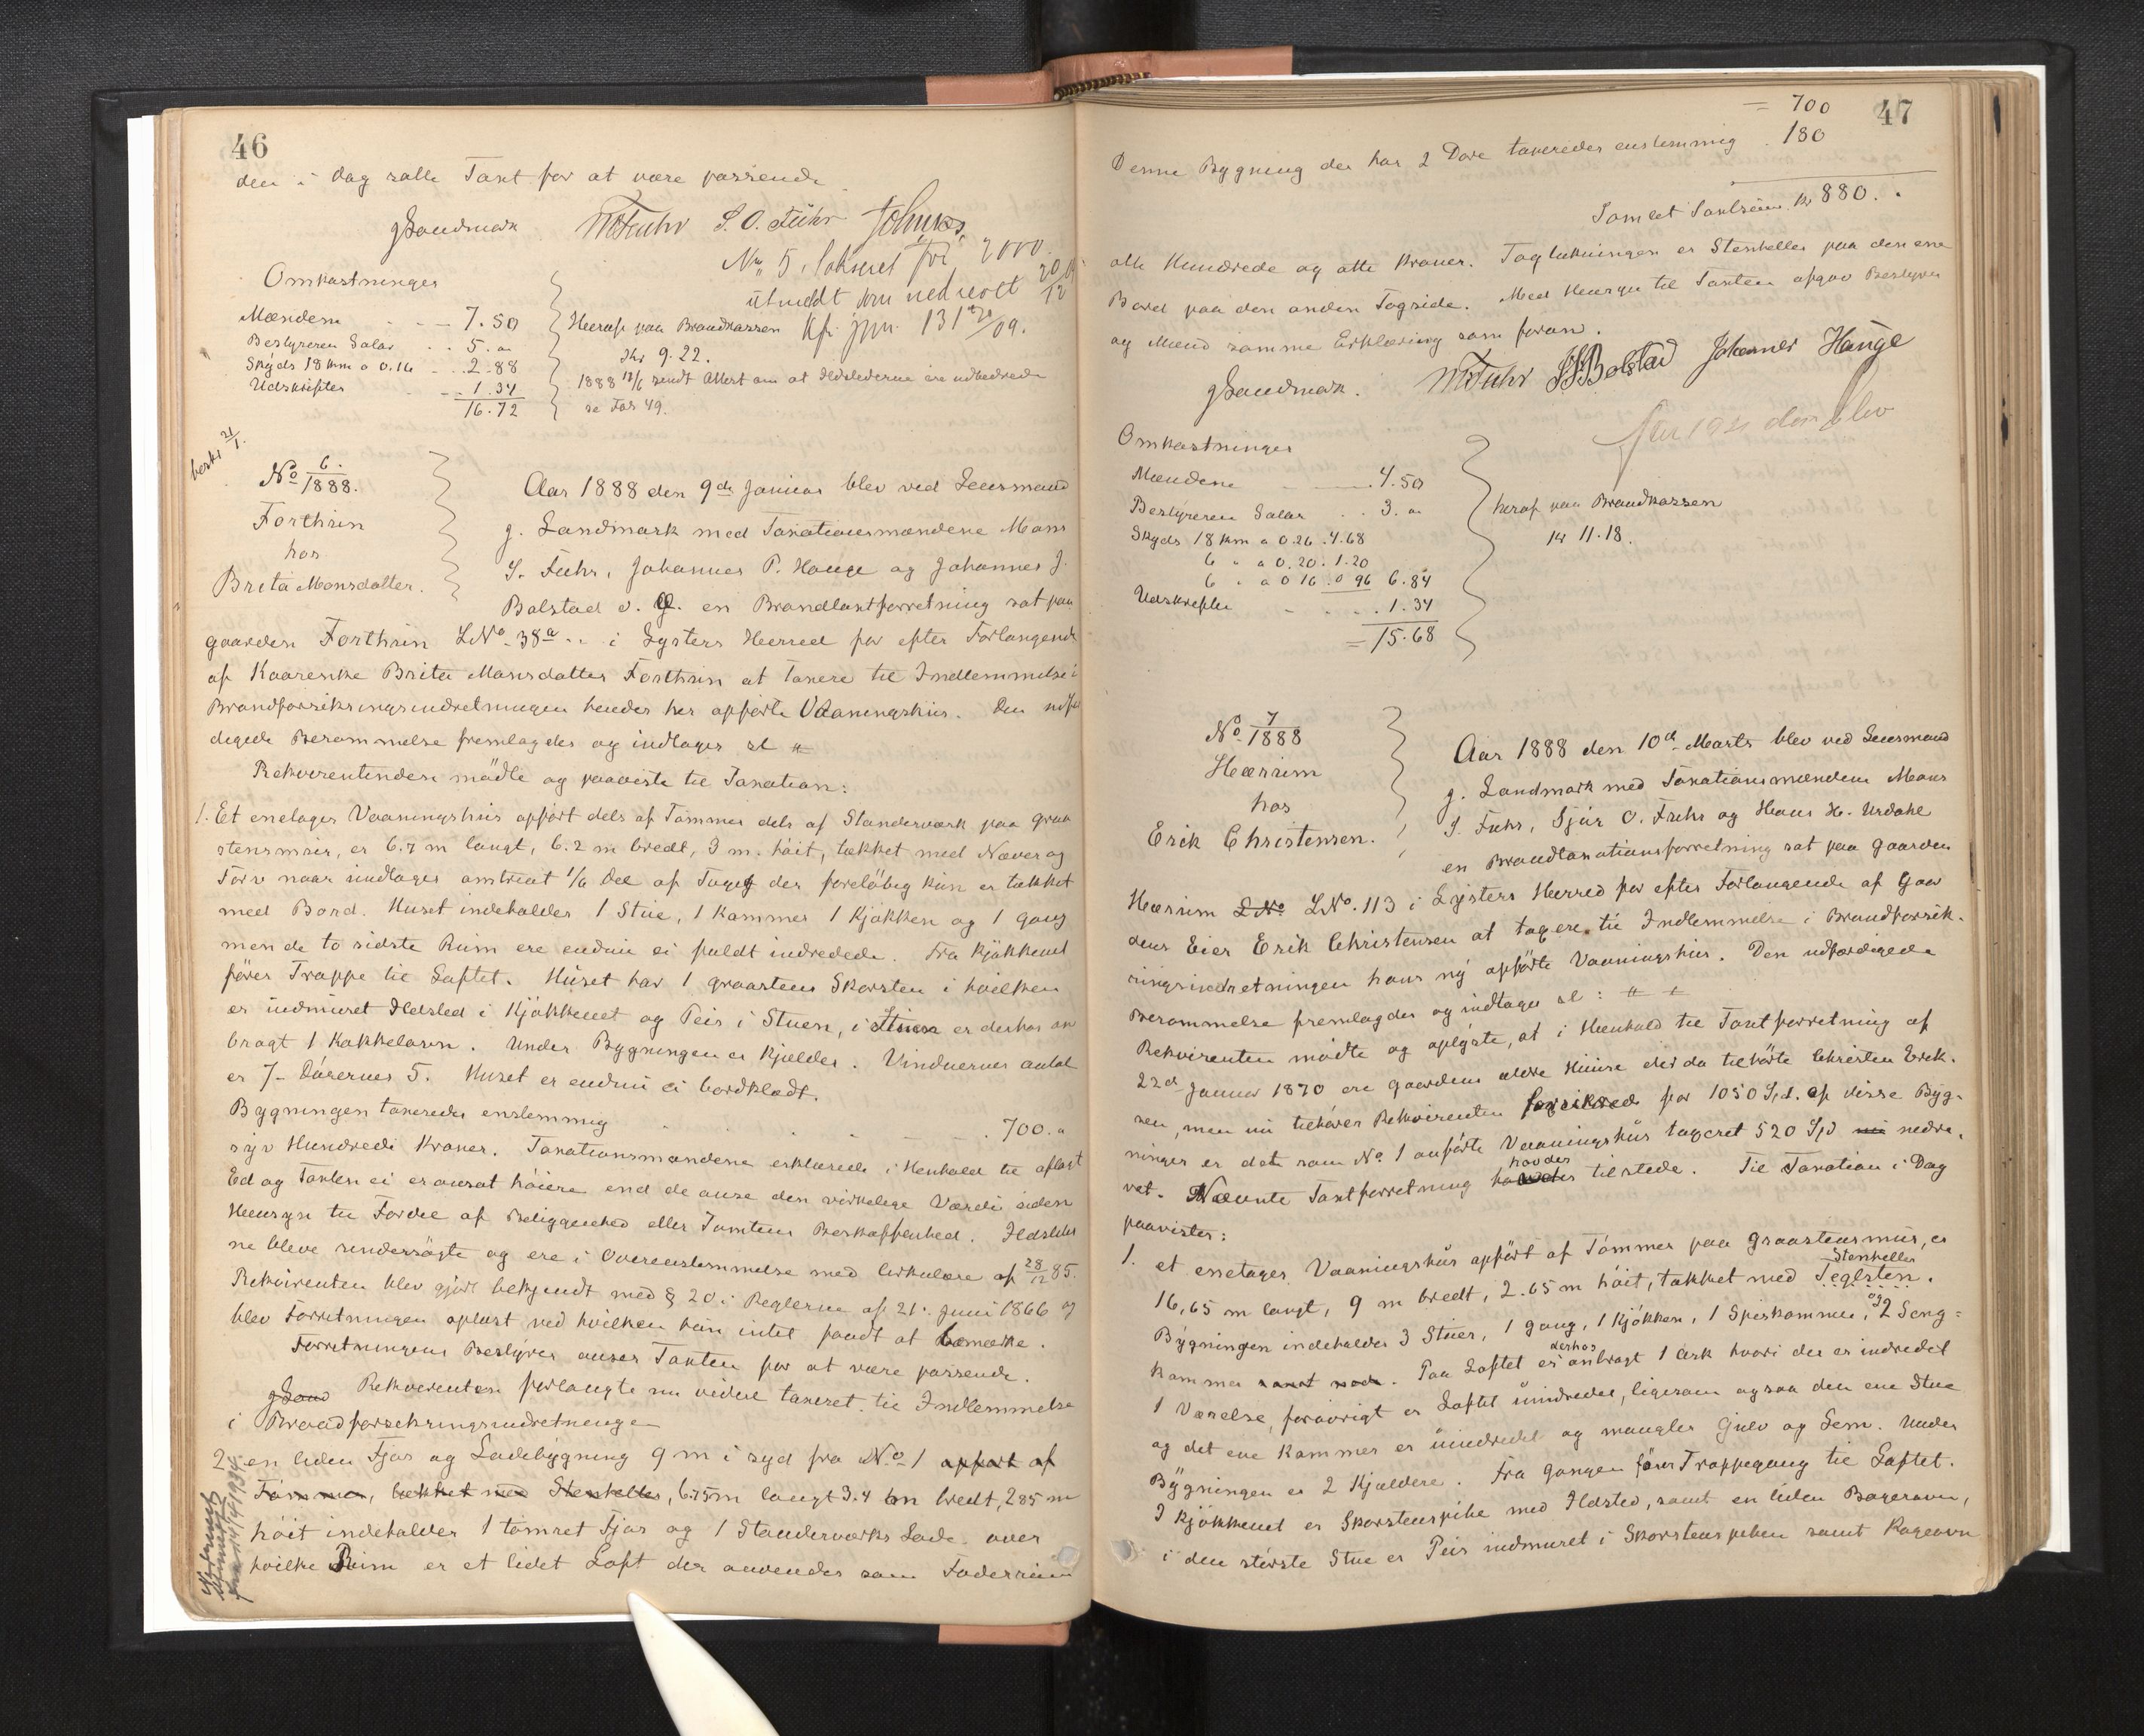 46
den i dag satte Taxt for at være passende
gLandmark MSFuhr S. O. Fuhr
No 5. taxeret for 2000
utmeldt som nedrevet
Omkostninger
Mændene 7.50
Bestyreren Salær 5. "
Skyds 18 km a 0.16 2.88
Udskrifter 1.34
16.72
Heraf paa Brandkassen
Kr 9.22.
Kfr. jrn. 131 20/09.
1888 18/6 sendt Attest om at Ildstederne ere udbedrede
se Fol 49.
No 6./1888.
Forthun
hos
Brita Monsdatter.
Aar 1888 den 9de Januar blev ved Lensmand
g. Landmark med Taxationsmændene Mons
S. Fuhr, Johannes P. Hauge og Johannes J.
Bolstad o. G. en Brandtaxtforretning sat paa
gaarden Forthun LNo 38a i Lysters Herred for efter Forlangende
af Kaareenke Brita Monsdatter Forthun at taxere til Indlemmelse i
Brandforsikringsindretningen hendes her opførte Vaaningshus. Den udfær
digede Berammelse fremlagdes og indtages sl #
Rekvirentinden mødte og paaviste til Taxation:
1. Et enetages Vaaningshus opført dels af Tømmer dels af Standerværk paa graa
stensmur, er 6.7 m langt, 6.2 m bredt, 3 m. høit, tækket med Næver og
Torv naar undtages omtrent 1/6 Del af Taget der foreløbig kun er tækket
med Bord. Huset indeholder 1 Stue, 1 Kammer 1 Kjøkken og 1 gang
men de to sidste Rum ere endnu ei fuldt indredede. Fra Kjøkkenet
fører Trappe til Loftet. Huset har 1 graastens Skorsten i hvilken
er indmuret Ildsted i Kjøkkenet og Peis i Stuen, i Stuen er derhos an
bragt 1 Kakkelovn. Under Bygningen er Kjælder. Vinduernes antal
er 7 - Dørernes 5. Huset er endnu ei bordklædt.
Bygningen taxeredes enstemmig 700. "
syv Hundrede Kroner. Taxationsmændene erklærede i Henhold til aflagt
Ed og Taxten ei er ansat høiere end de anse den virkelige Værdi uden
Hensyn til Fordel af Beliggenhed eller Tomtens Beskaffenhed. Ildstder
ne bleve undersøgte og ere i Overensstemmelse med Cirkulære af 28/12 85.
Rekvirenten blev gjort bekjendt med § 20 i Reglerne af 21. Juni 1866 og
blev Forretningen oplæst ved hvilken hun intet fandt at bemærke.
Forretningens Bestyrer anser Taxten for at være passende.
gLand Rekvirenten forlangte nu videre taxeret til Indlemmelse
i Brandforsekringsindretningen
2. en liden Fjøs og Ladebygning 9 m i syd fra No 1 opført af
Tømmer, tækket med Stenheller, 6.75m langt 3.4 m bredt, 2.85 m
høit indeholder 1 tømret Fjøs og 1 Standerværks Lade over
hvilke Rum er et lidet Loft der anvendes som Foderrum
47
= 700
Denne Bygning der har 2 Døre taxeredes enstemmig 180
Samlet Taxtsum Kr 880. .
otte Hundrede og otti Kroner. Taglækningen er Stenheller paa den ene
Bord paa den anden Tagside. Med Hensyn til Taxten afgav Bestyrer
og Mænd samme Erklæring som foran.
gLandmark. MSFuhr JJBolstad Johannes Hauge
Omkostninger
Mændene 4.50
Bestyreren Salær 3. "
Skyds 18 km a 0.26 . 4.68
6 " a 0.20 . 1.20
6 " a 0 16 . 0 96 6.84
Udskrifter 1.34
= 15.68
heraf paa Brandkassen
Kr 11.18.
No 7/1888
Hæsrum
hos
Erik Christensen.
Aar 1888 den 10de Marts blev ved Lensmand
g. Landmark med Taxationsmændene Mons
S. Fuhr, Sjur O. Fuhr og Hans H. Urdahl
en Brandtaxationsforretning sat paa gaarden
Hæsrum LNo LNo. 113 i Lysters Herred for efter Forlangende af Gaar
dens Eier Erik Christensen at taxere til Indlemmelse i Brandforsik-
ringsindretningen hans ny opførte Vaaningshus. Den udfærdigede
Berammelse fremlagdes og indtages sl: #
Rekvirenten mødte og oplyste, at i Henhold til Taxtforretning af
22de Januar 1870 ere gaardens ældre Huse der da tilhørte Christen Erik-
sen, men nu tilhører Rekvirenten forsikrede for 1050 Spd. af disse Byg-
ninger er det som No 1 anførte Vaaningshus taxeret 520 Spd nu nedre-
vet. Nævnte Taxtforretning havdes tilstede. Til Taxation i Dag
paavistes:
1. et enetages Vaaningshus opført af Tømmer paa Graastensmur, er
16,65 m langt, 9 m bredt, 2.65 m høit, tækket med Teglsten. Stenheller
Bygningen indeholder 3 Stuer, 1 gang, 1 Kjøkken, 1 Spiskammer, og 2 Seng-
kammer samt . Paa Loftet er derhos anbragt 1 Ark hvori der er indredet
1 Værelse, forøvrigt er Loftet uindredet, ligesom ogsaa den ene Stue
og det ene Kammer er uindredet og mangler Gulv og Lem. Under
Bygningen er 2 Kjældere. Fra Gangen fører Trappegang til Loftet.
I Kjøkkenet er Skorstenspibe med Ildsted, samt en liden Bagerovn,
i den største Stue er Peis indmuret i Skorstenspiben samt Kogeovn